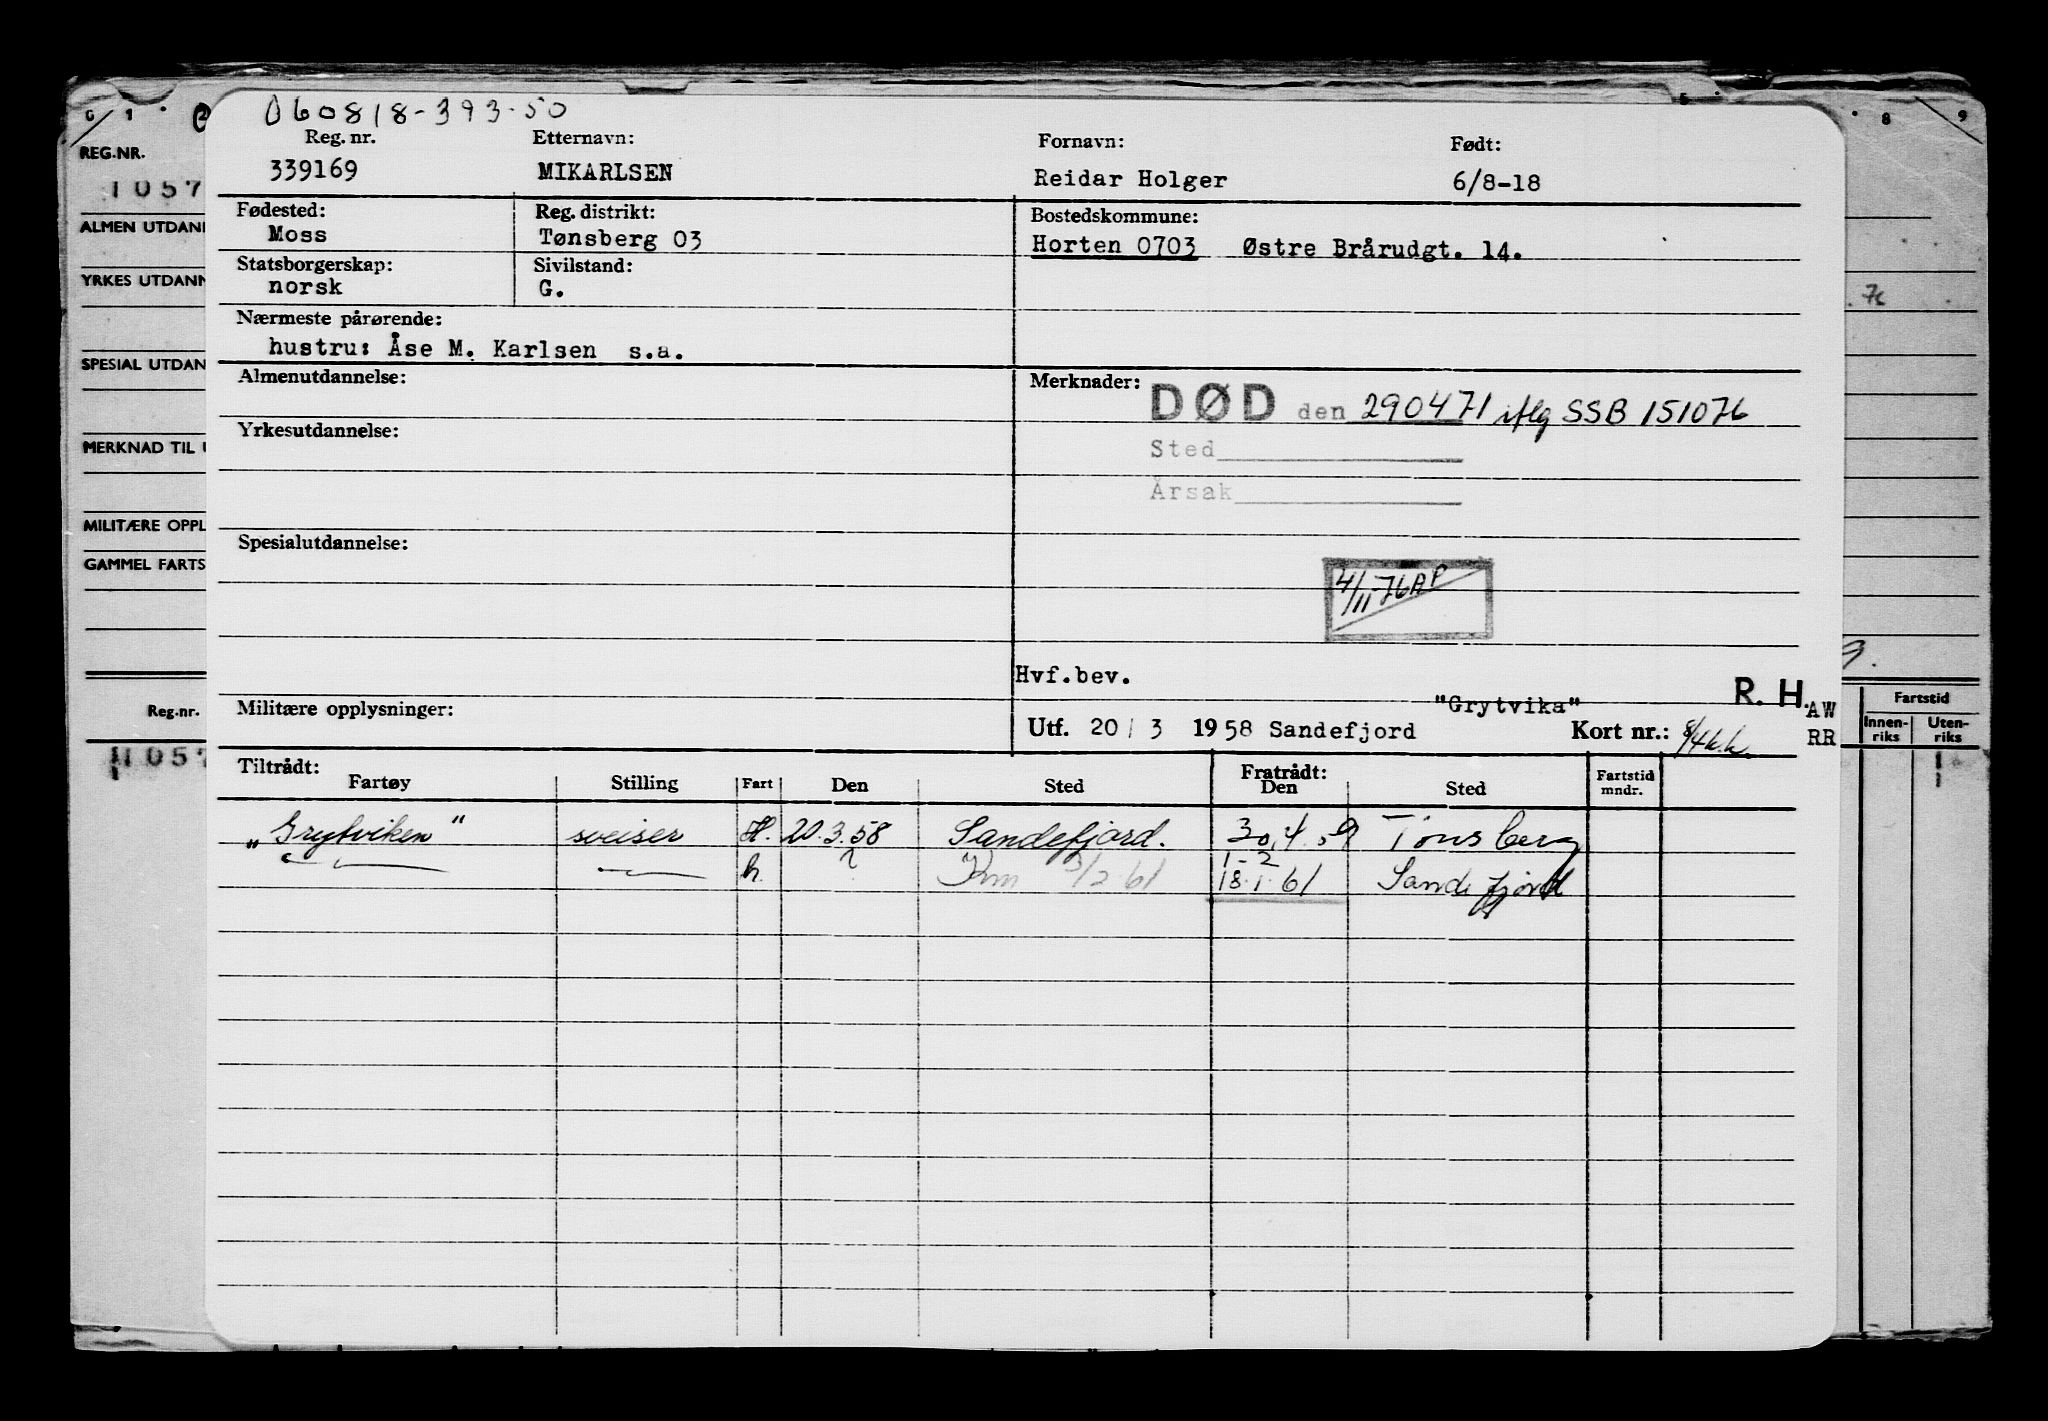 060818-393-50
Reg. nr. Etternavn: Fornavn: Født:
339169 MIKARLSEN Reidar Holger 6/8-18
Fødested: Reg. distrikt: Bostedskommune:
Moss Tønsberg 03 Horten 0703 Østre Brårudgt. 14.
Statsborgerskap: Sivilstand:
norsk G.
Nærmeste pårørende:
hustru: Åse M. Karlsen s.a.
Almenutdannelse: Merknader:
DØD den 290471 iflg SSB 151076
Yrkesutdannelse:
Sted
Årsak
Spesialutdannelse:
4/11-76 AP
Hvf.bev.
"Grytvika" R. H. AW
Militære opplysninger:
Utf. 20/3 1958 Sandefjord Kort nr.: RR
Tiltrådt: Fratrådt:
Fartøy Stilling Fart Den Sted Den Sted Fartstid mndr.
„Grytviken" sveiser H. 20.3.58 Sandefjord. 30.4.59 Tønsberg
1-2
h. ? 3/2 61 18.1.61 Sandefjord
G 1 8 9
REG.NR.
1057
ALMEN UTDAN
YRKES UTDANN
7c
SPESIAL UTDAN
MERKNAD TIL U
MILITÆRE OPPL
GAMMEL FARTS
Reg.nr.
057
Fartstid
Innen-riks Uten-riks